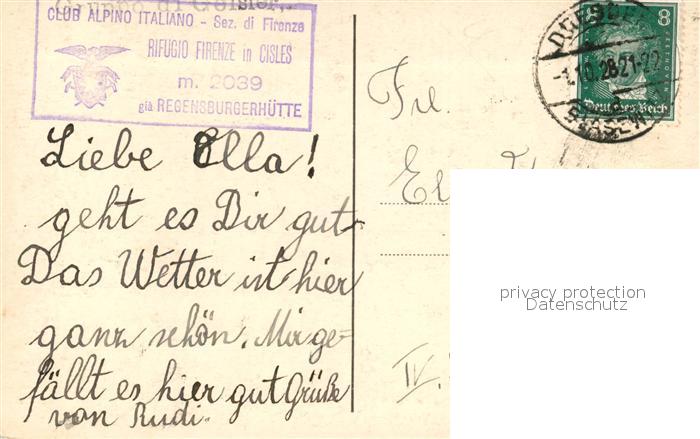 Gruppo di Geisler,
CLUB ALPINO ITALIANO - Sez. di Firenze
RIFUGIO FIRENZE in CISLES
m. 2039
già REGENSBURGERHÜTTE
Liebe Ella!
geht es Dir gut
Das Wetter ist hier
ganz schön. Mir ge-
fällt es hier gut Grüße
von Rudi.
DRESDEN
-1.10.28.21-22
BLASEWITZ
8
Deutsches Reich
BEETHOVEN
Frl.
El
IV.
privacy protection
Datenschutz